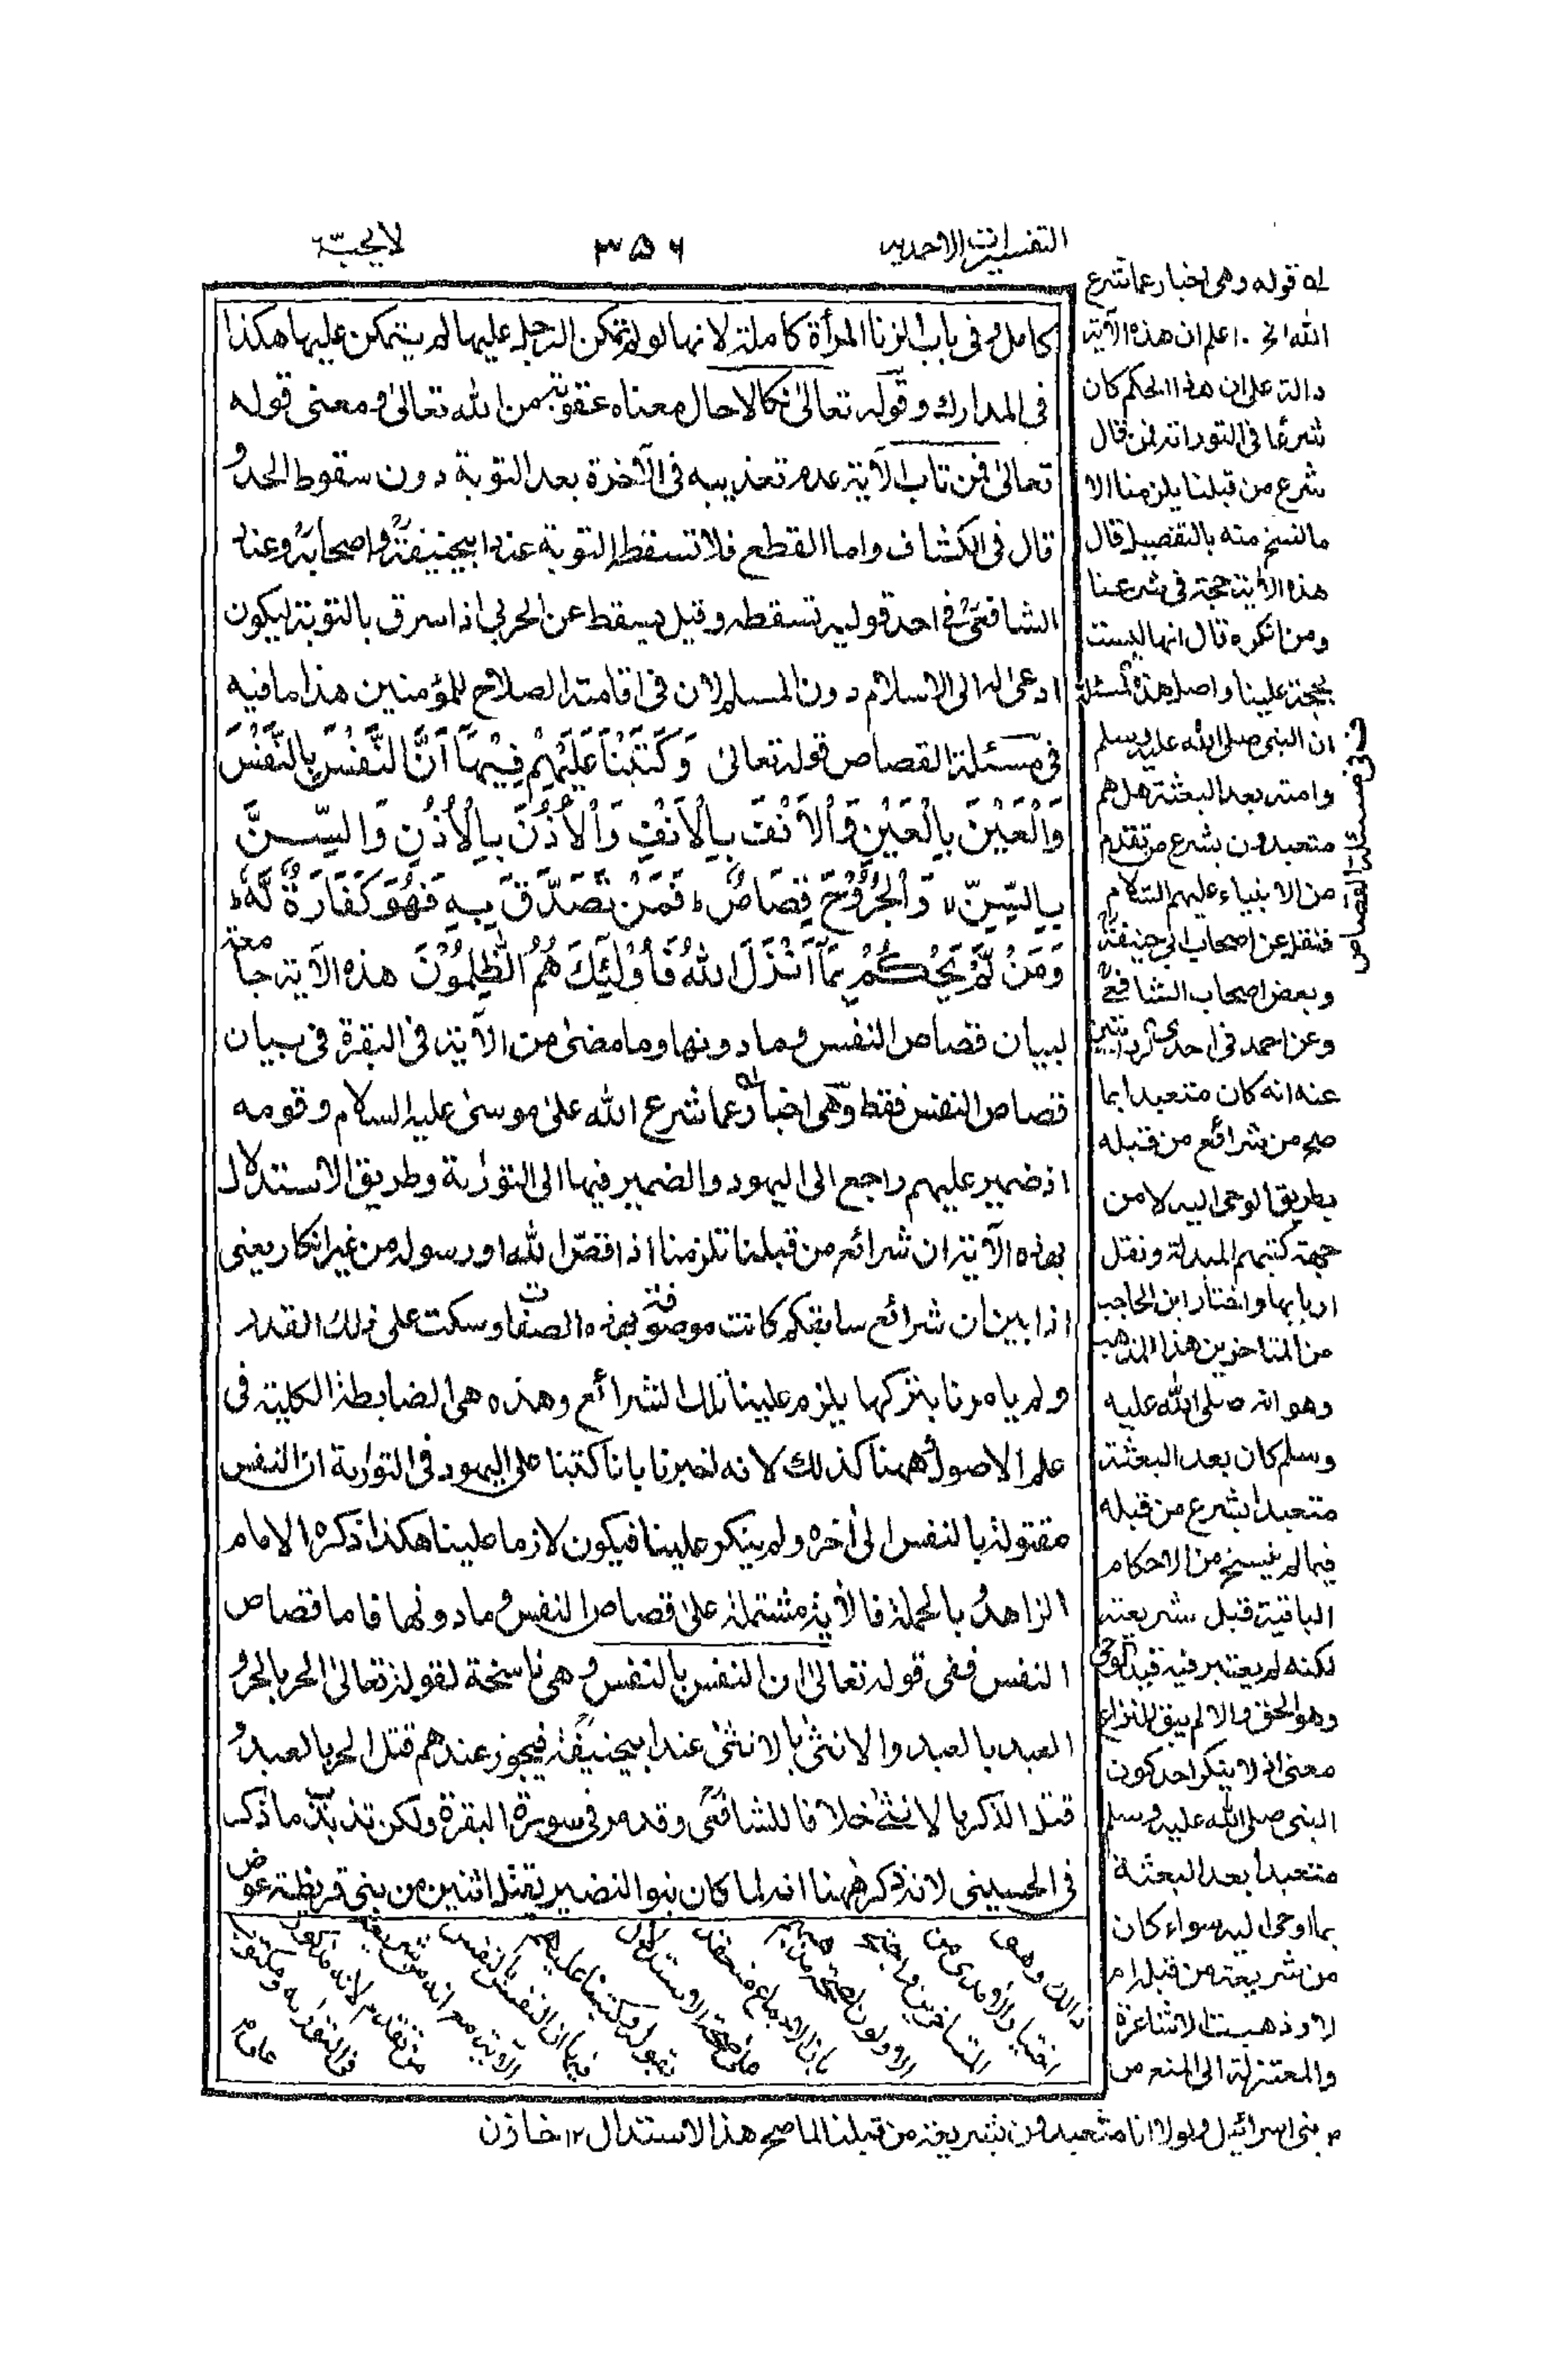 التفسيرات الاحمديه
٣٥٦
لايحبّ ٦
كامل و فى باب الزنا المرأة كاملة لانها لو لم تمكن الرجل عليها لم يتمكن عليها هكذا
فى المدارك وقوله تعالىٰ نكالا حال معناه عقوبة من الله تعالىٰ و معنى قوله
تعالىٰ فمن تاب الآية عدم تعذيبه فى الآخرة بعد التوبة دون سقوط الحد و
قال فى الكشاف واما القطع فلا تسقطه التوبة عند ابيحنيفةؒ واصحابهؒ وعند
الشافعىؒ فى احد قوليه تسقطه وقيل يسقط عن الحربى اذا سرق بالتوبة ليكون
ادعى له الى الاسلام دون المسلم لان فى اقامته الصلاح للمؤمنين هذا ما فيه
فى مسئلة القصاص قوله تعالىٰ وَكَتَبْنَا عَلَيْهِمْ فِيْهَآ اَنَّ النَّفْسَ بِالنَّفْسِ
وَالْعَيْنَ بِالْعَيْنِ وَالْاَنْفَ بِالْاَنْفِ وَالْاُذُنَ بِالْاُذُنِ وَالسِّنَّ
بِالسِّنِّ وَالْجُرُوْحَ قِصَاصٌ ط فَمَنْ تَصَدَّقَ بِهٖ فَهُوَ كَفَّارَةٌ لَّهٗ ط
وَمَنْ لَّمْ يَحْكُمْ بِمَآ اَنْزَلَ اللّٰهُ فَاُولٰٓئِكَ هُمُ الظّٰلِمُوْنَ هذه الآية جامعة
لبيان قصاص النفس وما دونها وما مضىٰ من الآية فى البقرة فى بيان
قصاص النفس فقط وهى اخبار عما شرع الله علىٰ موسىٰ عليه السلام وقومه
اذ ضمير عليهم راجع الى اليهود والضمير فيها الى التوراىة وطريق الاستدلال
بهذه الآية ان شرائع من قبلنا تلزمنا اذا قصّ الله او رسوله من غير انكار يعنى
اذا بين ان شرائع سابقكم كانت موصوفة بهذه الصفات وسكت على ذلك القدر
ولم يامرنا بتركها يلزم علينا تلك الشرائع وهذه هى الضابطة الكلية فى
علم الاصول فههنا كذلك لانه اخبرنا بانا كتبنا على اليهود فى التورٰىة ان النفس
مقتولة بالنفس الى آخره ولم ينكر علينا فيكون لازما علينا هكذا ذكره الامام
الزاهدؒ بالجملة فالآية مشتملة علىٰ قصاص النفس و ما دونها فاما قصاص
النفس ففى قوله تعالىٰ ان النفس بالنفس و هى ناسخة لقوله تعالىٰ الحر بالحر و
العبد بالعبد والانثىٰ بالانثىٰ عند ابيحنيفةؒ فيجوز عندهم قتل الحر بالعبد و
قتل الذكر بالانثىٰ خلافا للشافعىؒ وقد مر فى سورة البقرة ولكن ما ذكر
فى الحسينى لانه ذكر ههنا انه لما كان بنو النضير يقتل اثنين من بنى قريظة عوض
له قوله وهى اخبار عما شرع
الله الخ ۔ اعلم ان هذه الآية
دالة على ان هذا الحكم كان
شرعا فى التوراة فمن قال
شرع من قبلنا يلزمنا الا
ما نسخ منه بالتفصيل قال
هذه الآية حجة فى شرعنا
ومن انكره قال انها ليست
بحجة علينا واصل هذه المسئلة
ان النبى صلى الله عليه وسلم
وامته بعد البعثة هل هم
متعبدون بشرع من تقدم
من الانبياء عليهم السلام
فنقل عن اصحاب ابى حنيفةؒ
وبعض اصحاب الشافعىؒ
وعن احمد فى احدى الروايتين
عنه انه كان متعبدا بما
صح من شرائع من قبله
بطريق الوحى اليه لا من
جهة كتبهم المبدلة ونقل
اربابها واختار ابن الحاجب
من المتاخرين هذا المذهب
وهو انه صلى الله عليه
وسلم كان بعد البعثة
متعبدا بشرع من قبله
فيما لم ينسخ من الاحكام
الباقية قبل شريعته
لكنه لم يعتبر فيه قيد الوحى
وهو الحق والا لم يبق للنزاع
معنى اذ لا ينكر احد كون
النبى صلى الله عليه وسلم
متعبدا بعد البعثة
بما اوحى اليه سواء كان
من شريعة من قبله ام
لا وذهبت الاشاعرة
والمعتزلة الى المنع من
فى مسئلة القصاص
ذالك وهو
اختيار الآمدى من
المتاخرين واحتج
الاولون
بان الاجماع منعقد
على صحة الاستدلال
بقوله وكتبنا عليهم
فيها ان النفس بالنفس
الآية مع انه من شريعة
من تقدم لانه مذكور
فى التورٰىة ومكتوب
على م
م بنى اسرائيل ولولا انا متعبدون بشريعة من قبلنا لما صح هذا الاستدلال ١٢ خازن